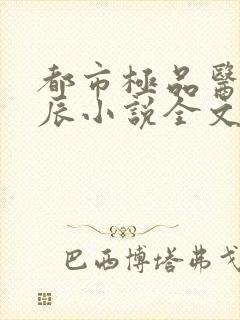 都市極品醫
辰小說全文
巴西博塔弗戈